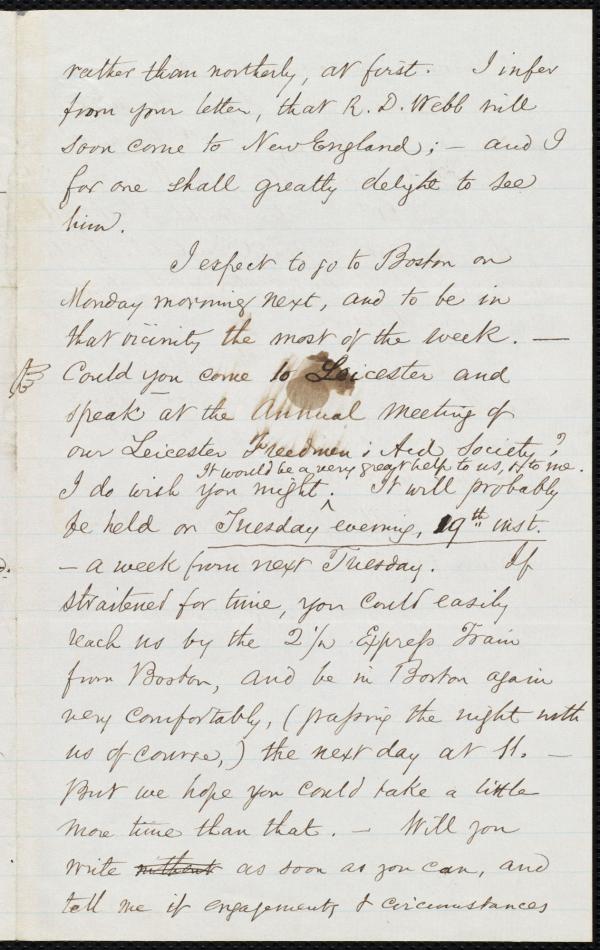 rather than northerly, at first. I infer
from your letter, that R. D. Webb will
soon come to New England; – and I
for one shall greatly delight to see
him.
I expect to go to Boston on
Monday morning next, and to be in
that vicinity the most of the week. —
Could you come to Leicester and
speak at the Annual Meeting of
our Leicester Freedmen's Aid Society?
It would be a very great help to us, & to me.
I do wish you might. ^ It will probably
be held on Tuesday evening, 19th inst.
– a week from next Tuesday. If
straitened for time, you could easily
reach us by the 2 1/2 Express Train
from Boston, and be in Boston again
very comfortably, (passing the night with
us of course,) the next day at 11. —
But we hope you could take a little
more time than that. – Will you
write without as soon as you can, and
tell me if engagements & circumstances